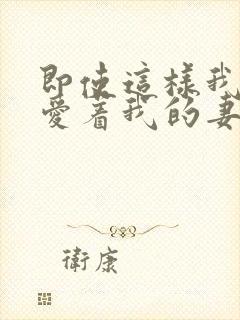 即使這樣我
愛着我的妻
衛康